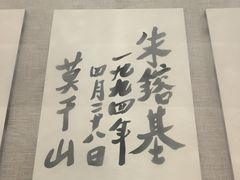 朱镕基
一九九四年
四月二十八日
莫干山